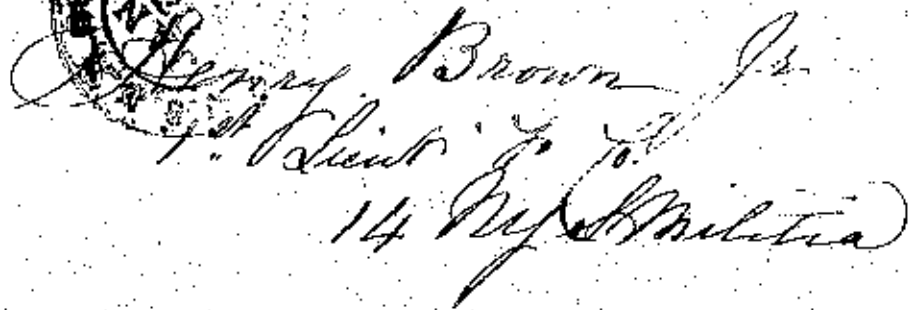 Henry Brown Jr.
1st Lieut
14 NY S Militia